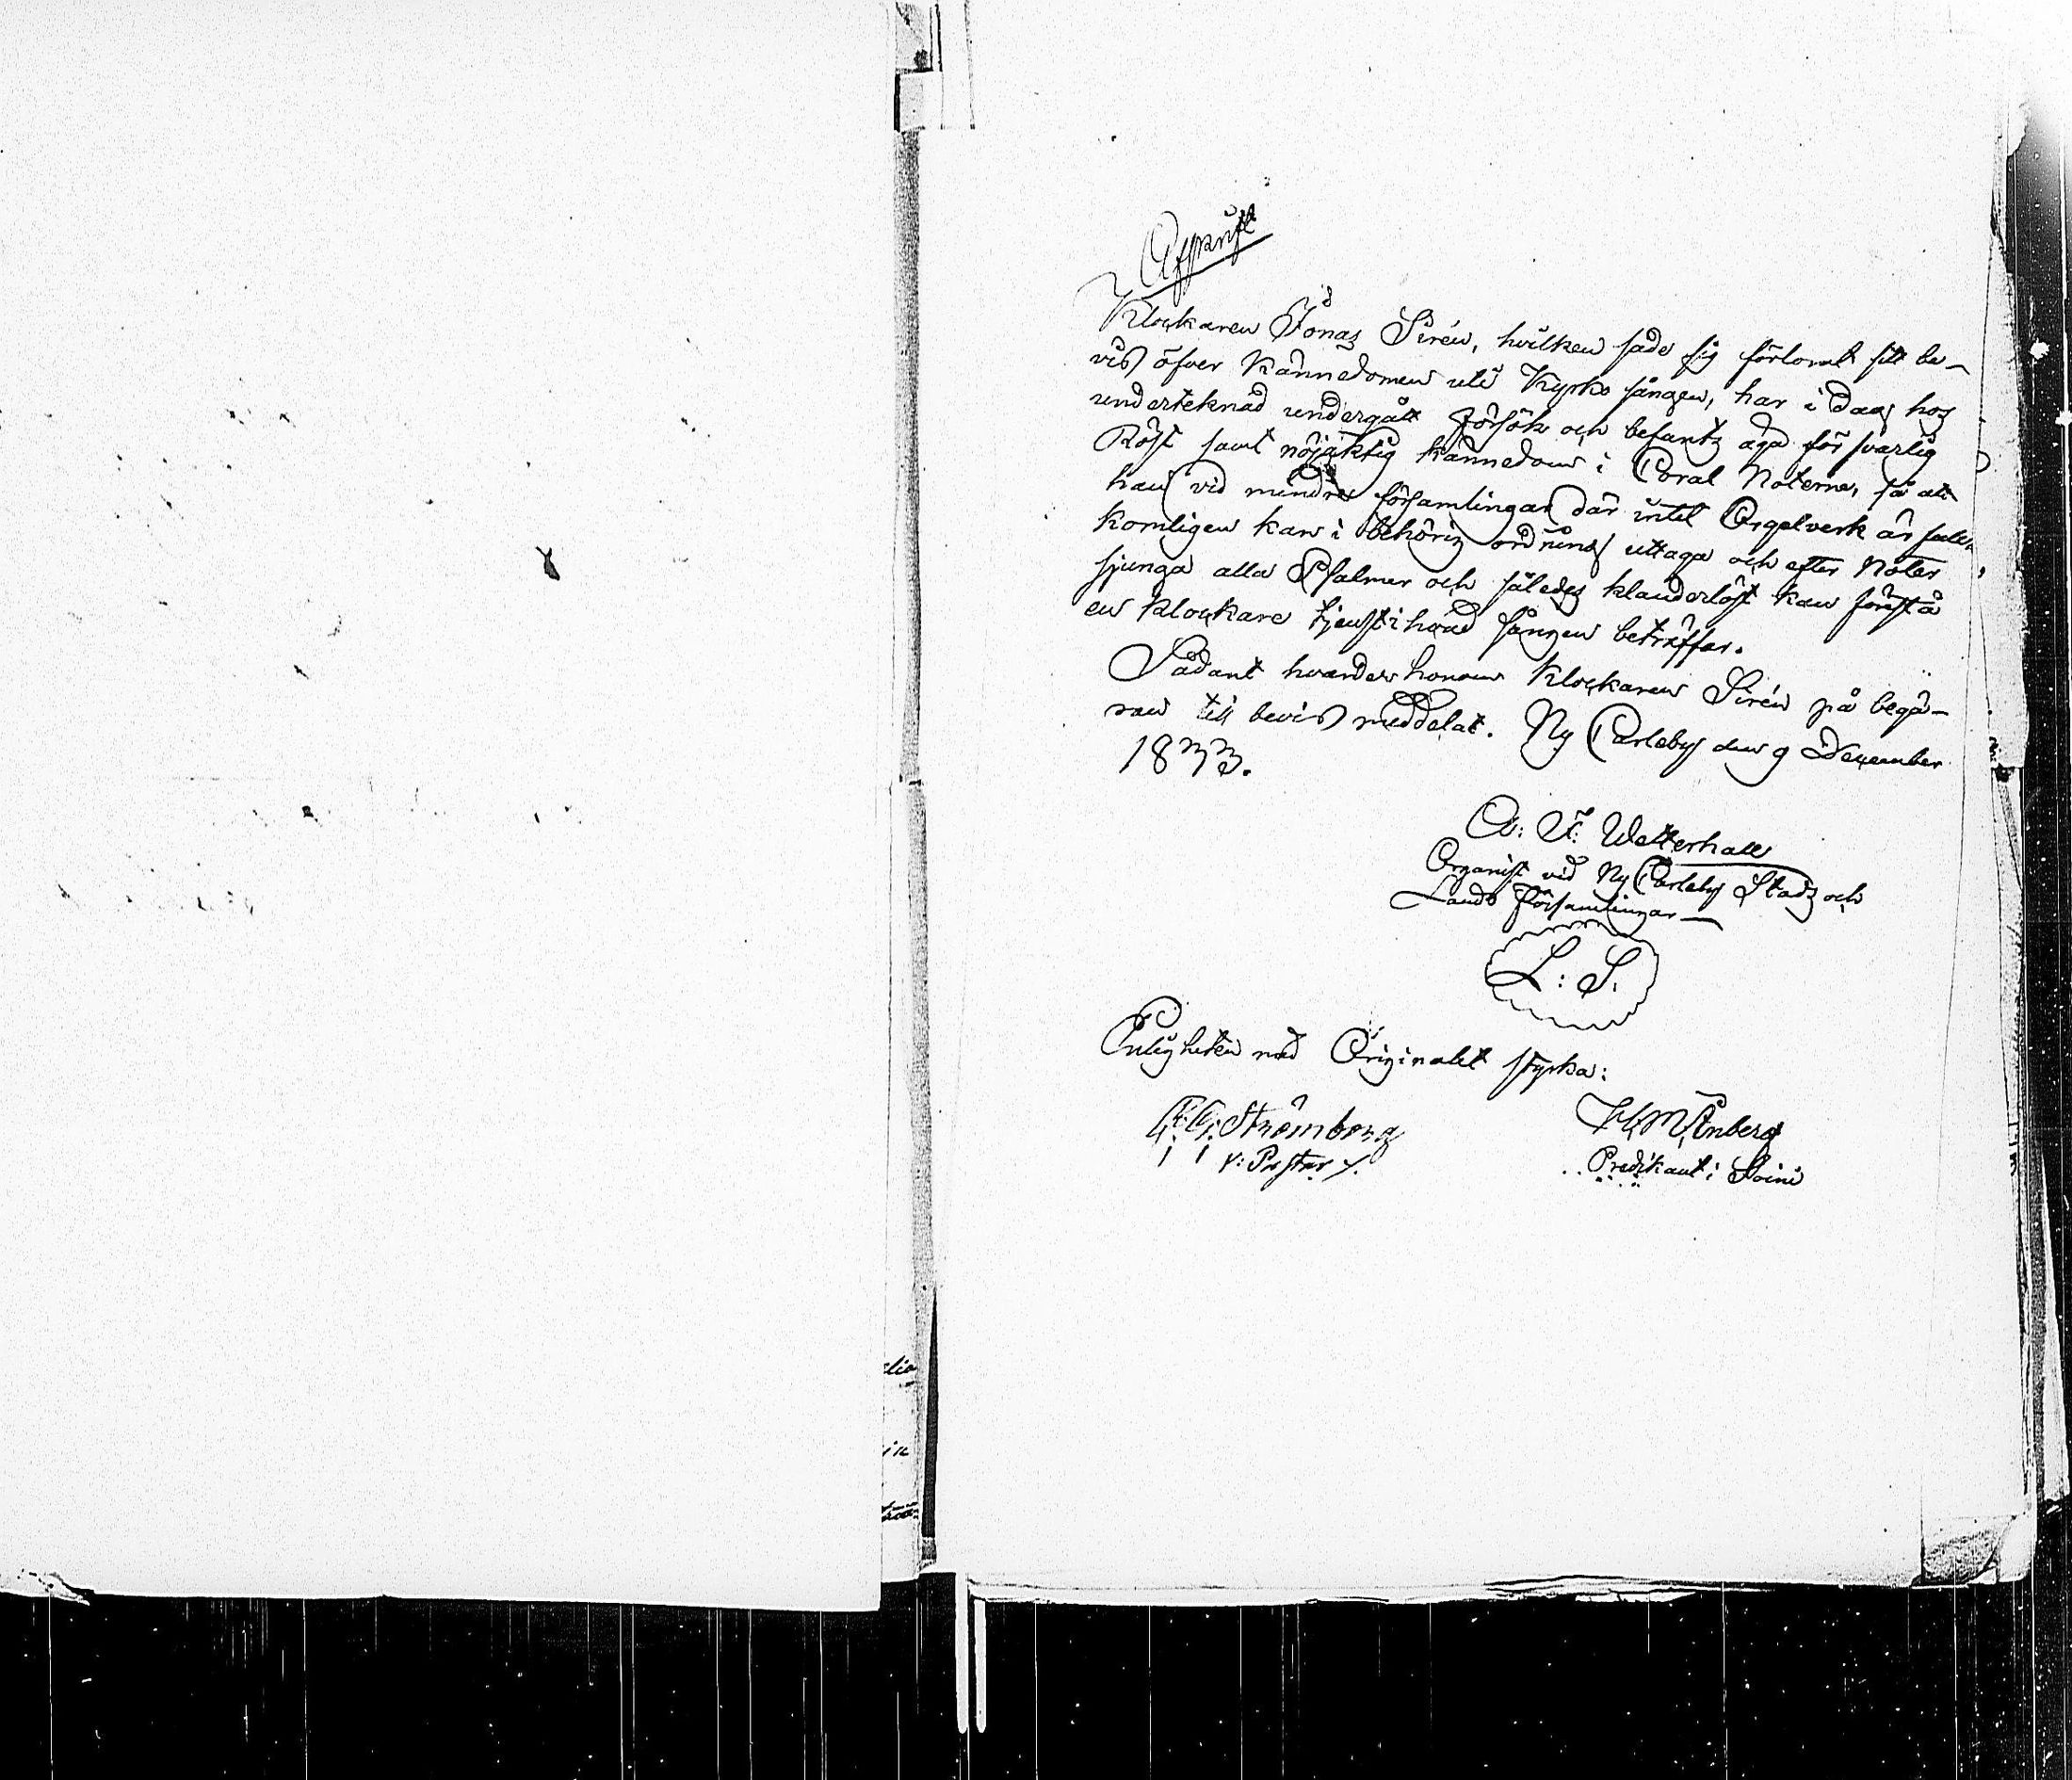 Afskrift
Klockaren Jonas Sirén, hvilken sade sig förlorat sitt be-
vis öfver Kännedomen uti Kyrko sången, har i dag hos
underteknad undergått Försök och befants äga försvarlig
Röst samt nöjaktig kännedom i Coral Noterne, så att
han vid mindre församlingar där intet Orgelverk är full-
komligen kan i behörig ordning uttaga och efter Noter
sjunga alla Psalmer och således klanderlöst kan förestå
en Klockare tjenst i hvad sången beträffar.
Sådant hvarder honom Klockaren Sirén på begä-
ran till bevis meddelat. Ny Carleby den 9 December
1833.
A: F: Wetterhall
Organist vid Ny Carleby Stads och
Lands Församlingar
L: S.
Enligheten med Originalet styrka:
Strömborg
v: Pastor
Änberg
Predikant i Soini